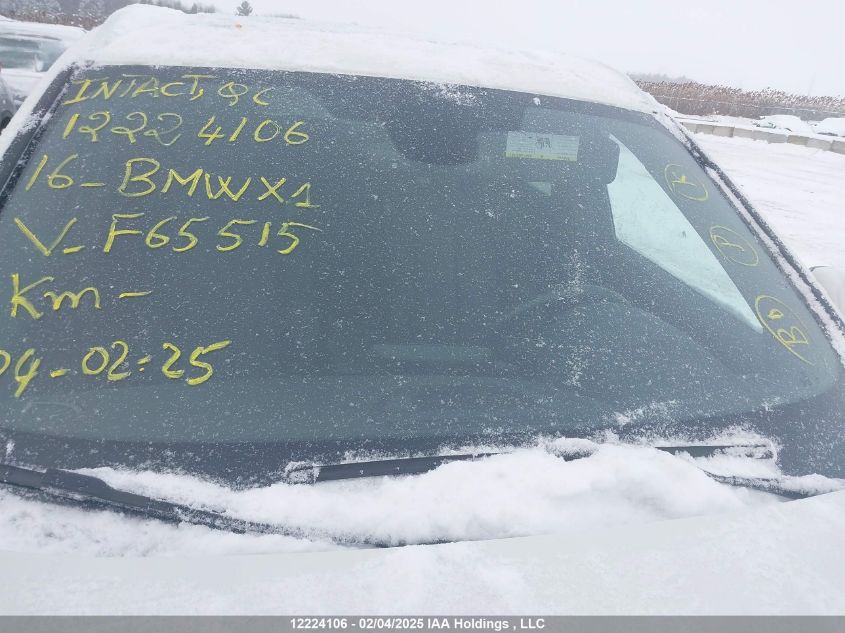 INTACT, QC
1222 4106
16-BMWX1
V-F65515
Km-
04-02-25
B
12224106 - 02/04/2025 IAA Holdings , LLC